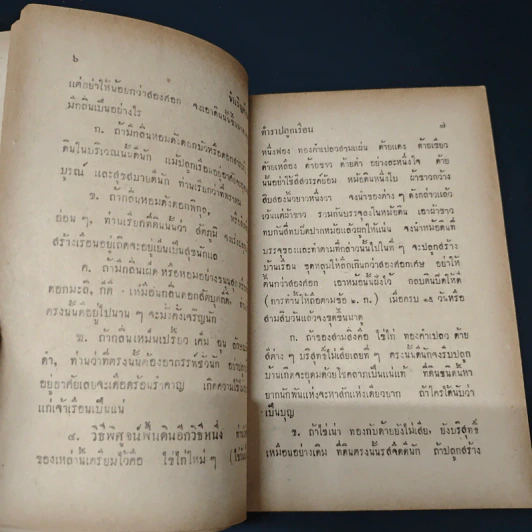 ๖
แต่อย่าให้น้อยกว่าสองศอก จะเอาดินนั้นขึ้นมา
มีกลิ่นเป็นอย่างไร
ก. ถ้ามีกลิ่นหอมดังดอกบัวหรือดอก
ดินในบริเวณนั้นดีนัก แม้ปลูกเรือนอยู่อาศัย
บูรณ์ และสุขสบายดีนัก ท่านเรียกว่า
ข. ถ้ากลิ่นหอมดังดอกพิกุล,
อ่อน ๆ, ท่านเรียกที่ดินนั้นว่า สัตภูมิ
สร้างเรือนอยู่เถิดจะอยู่เย็นเป็นสุขนักแล
ค. ถ้ามีกลิ่นเผ็ด หรือหอมอย่าง
ดอกมะลิ, ก็ดี เหมือนกลิ่นดอก
ตรงนั้นดีอยู่ไปนาน ๆ จะมั่งคั่งเจริญนัก
ฆ. ถ้ากลิ่นเหม็นเปรี้ยว เค็ม ฉุน
ดำ, ท่านว่าที่ตรงนั้นต้อง
อยู่อาศัยเลยจะเดือดร้อนรำคาญ เกิดความ
แก่เจ้าเรือนเป็นแน่
๔. วิธีพิศูจน์พื้นดินอีกวิธีหนึ่ง
ของเหล่านี้เตรียมไว้คือ ไข่ไก่ใหม่ ๆ
ตำราปลูกเรือน ๗
หนึ่งฟอง ทองคำเปลวสามแผ่น ด้ายแดง ด้ายเขียว
ด้ายเหลือง ด้ายขาว ด้ายดำ อย่างละหนึ่งใจ ด้าย
นั้นอย่าใช้สีสวรรค์ย้อม หม้อดินหนึ่งใบ ผ้าขาวกว้าง
สิบสองนิ้วยาวหนึ่งวา จงนำของต่าง ๆ ดังกล่าวแล้ว
เว้นแต่ผ้าขาว รวมกันบรรจุลงในหม้อดิน เอาผ้าขาว
ทบกันสี่ทบปิดปากหม้อแล้วผูกให้แน่น จงนำหม้อดินที่
บรรจุของและทำตามที่กล่าวนั้นไปในที่ ๆ จะปลูกสร้าง
บ้านเรือน ขุดหลุมให้ลึกเกินกว่าสองศอกเศษ อย่าให้
ตื้นกว่าสองศอก เอาหม้อนั้นฝังไว้ กลบดินปิดให้ดี
(การทำนี้ให้ถือตามข้อ ๒. ก.) เมื่อครบ ๑๕ วันหรือ
สามสิบวันแล้วจงขุดขึ้นมาดู
ก. ถ้าของสามสิ่งคือ ไข่ไก่ ทองคำเปลว ด้าย
สีต่าง ๆ บริสุทธิ์ไม่เสียเลยที่ ๆ ตรงนั้นดีนักจงรีบปลูก
บ้านเกิดจะอุดมด้วยโชคลาภเป็นแน่แท้ ที่ดินชนิดนั้นหา
ยากนักพันแห่งจะหาสักแห่งเดียวยาก ถ้าใครได้นับว่า
เป็นบุญ
ข. ถ้าไข่เน่า ทองกับด้ายยังไม่เสีย, ยังบริสุทธิ์
เหมือนอย่างเดิม ที่ดินตรงนั้นรสจืดดีนัก ถ้าปลูกสร้าง